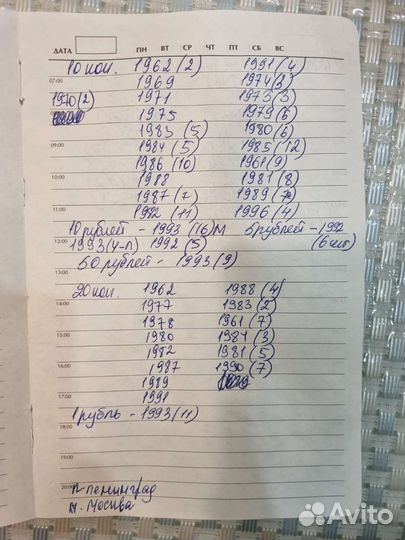 ДАТА ПН ВТ СР ЧТ ПТ СБ ВС
10 коп. 1962 (2) 1991 (4)
07:00 1969 1974 (3)
1970 (2) 1971 1973 (3)
1975 1979 (5)
1983 (5) 1980 (6)
09:00 1984 (5) 1985 (12)
1986 (10) 1961 (9)
10:00 1988 1981 (8)
1987 (7) 1989
11:00 1982 (11) 1996 (4)
10 рублей - 1993 (16) М 5 рублей - 1992
12:00 1993 (4-Л) 1992 (5) (6 шт)
50 рублей - 1993 (9)
13:00
20 коп. 1962 1988 (4)
14:00 1977 1983 (2)
1978 1961 (7)
15:00 1980 1984 (3)
1982 1981 (5)
16:00 1987 1990 (7)
1989
17:00 1991
1 рубль - 1993 (11)
18:00
19:00
20:00
Л-Ленинград
М. Москва
Avito